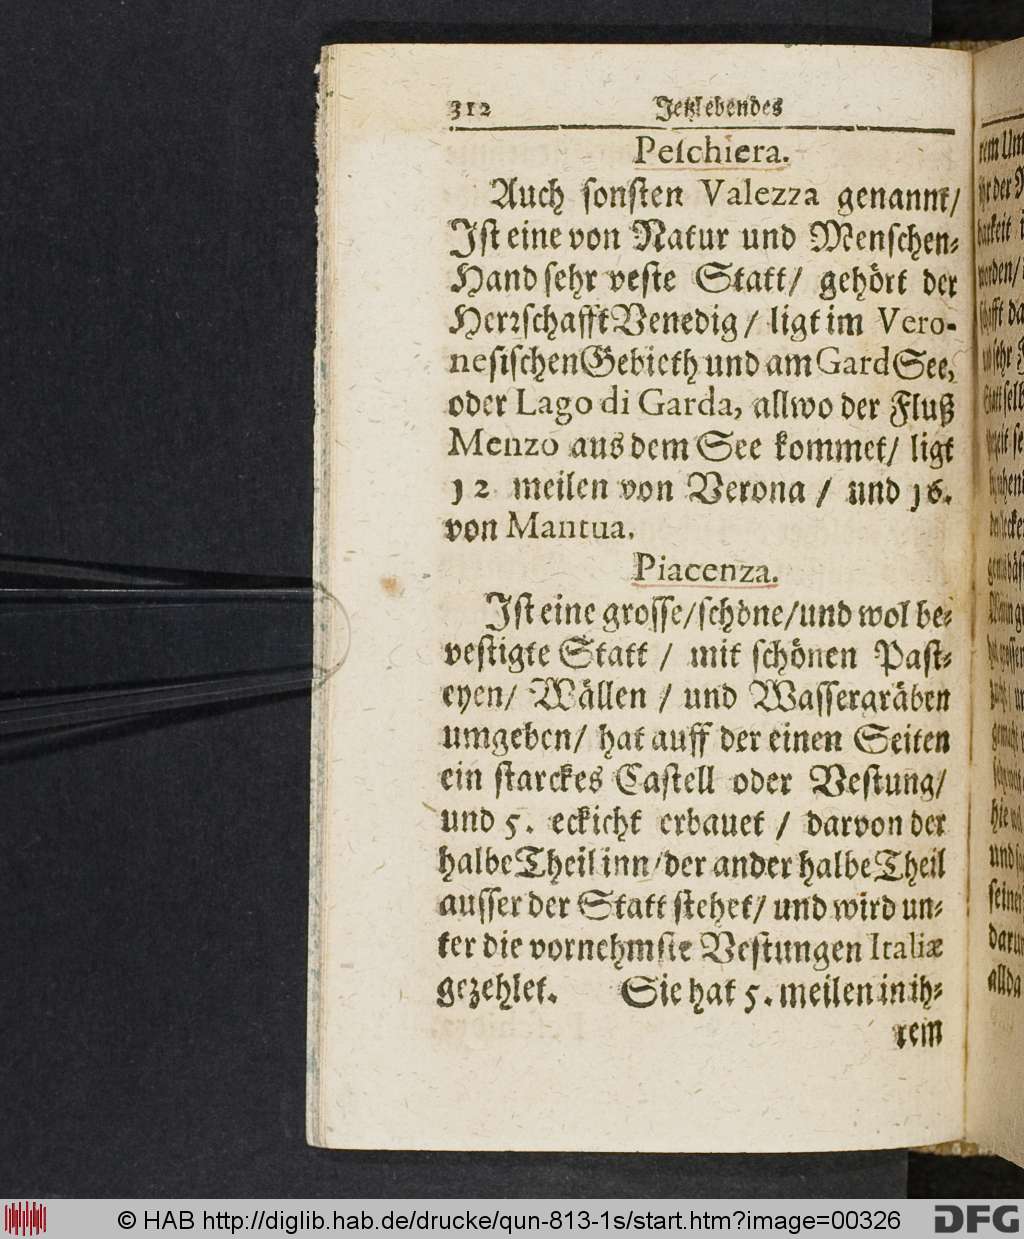 312 Jetzlebendes
Peſchiera.
Auch ſonſten Valezza genannt/
Iſt eine von Natur und Menſchen-
Hand ſehr veſte Statt/ gehört der
Herꝛſchafft Venedig/ ligt im Vero-
neſiſchen Gebieth und am Gard See,
oder Lago di Garda, allwo der Fluß
Menzo aus dem See kommet/ ligt
12 meilen von Verona / und 16.
von Mantua.
Piacenza.
Iſt eine groſſe/ſchöne/und wol be-
veſtigte Statt / mit ſchönen Paſt-
eyen/ Wällen / und Waſſergräben
umgeben/ hat auff der einen Seiten
ein ſtarckes Caſtell oder Veſtung/
und 5. eckicht erbauet / darvon der
halbe Theil inn/der ander halbe Theil
auſſer der Statt ſtehet/ und wird un-
ter die vornehmſte Veſtungen Italiæ
gezehlet. Sie hat 5. meilen in ih-
rem
© HAB http://diglib.hab.de/drucke/qun-813-1s/start.htm?image=00326
DFG